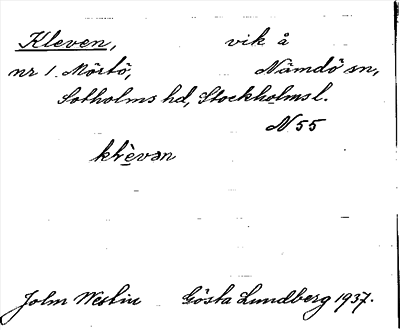 Kleven, vik å
nr 1. Mörtö, Nämdö sn,
Sotholms hd, Stockholms l.
N 55
klèvən
John Westin Gösta Lundberg 1937.